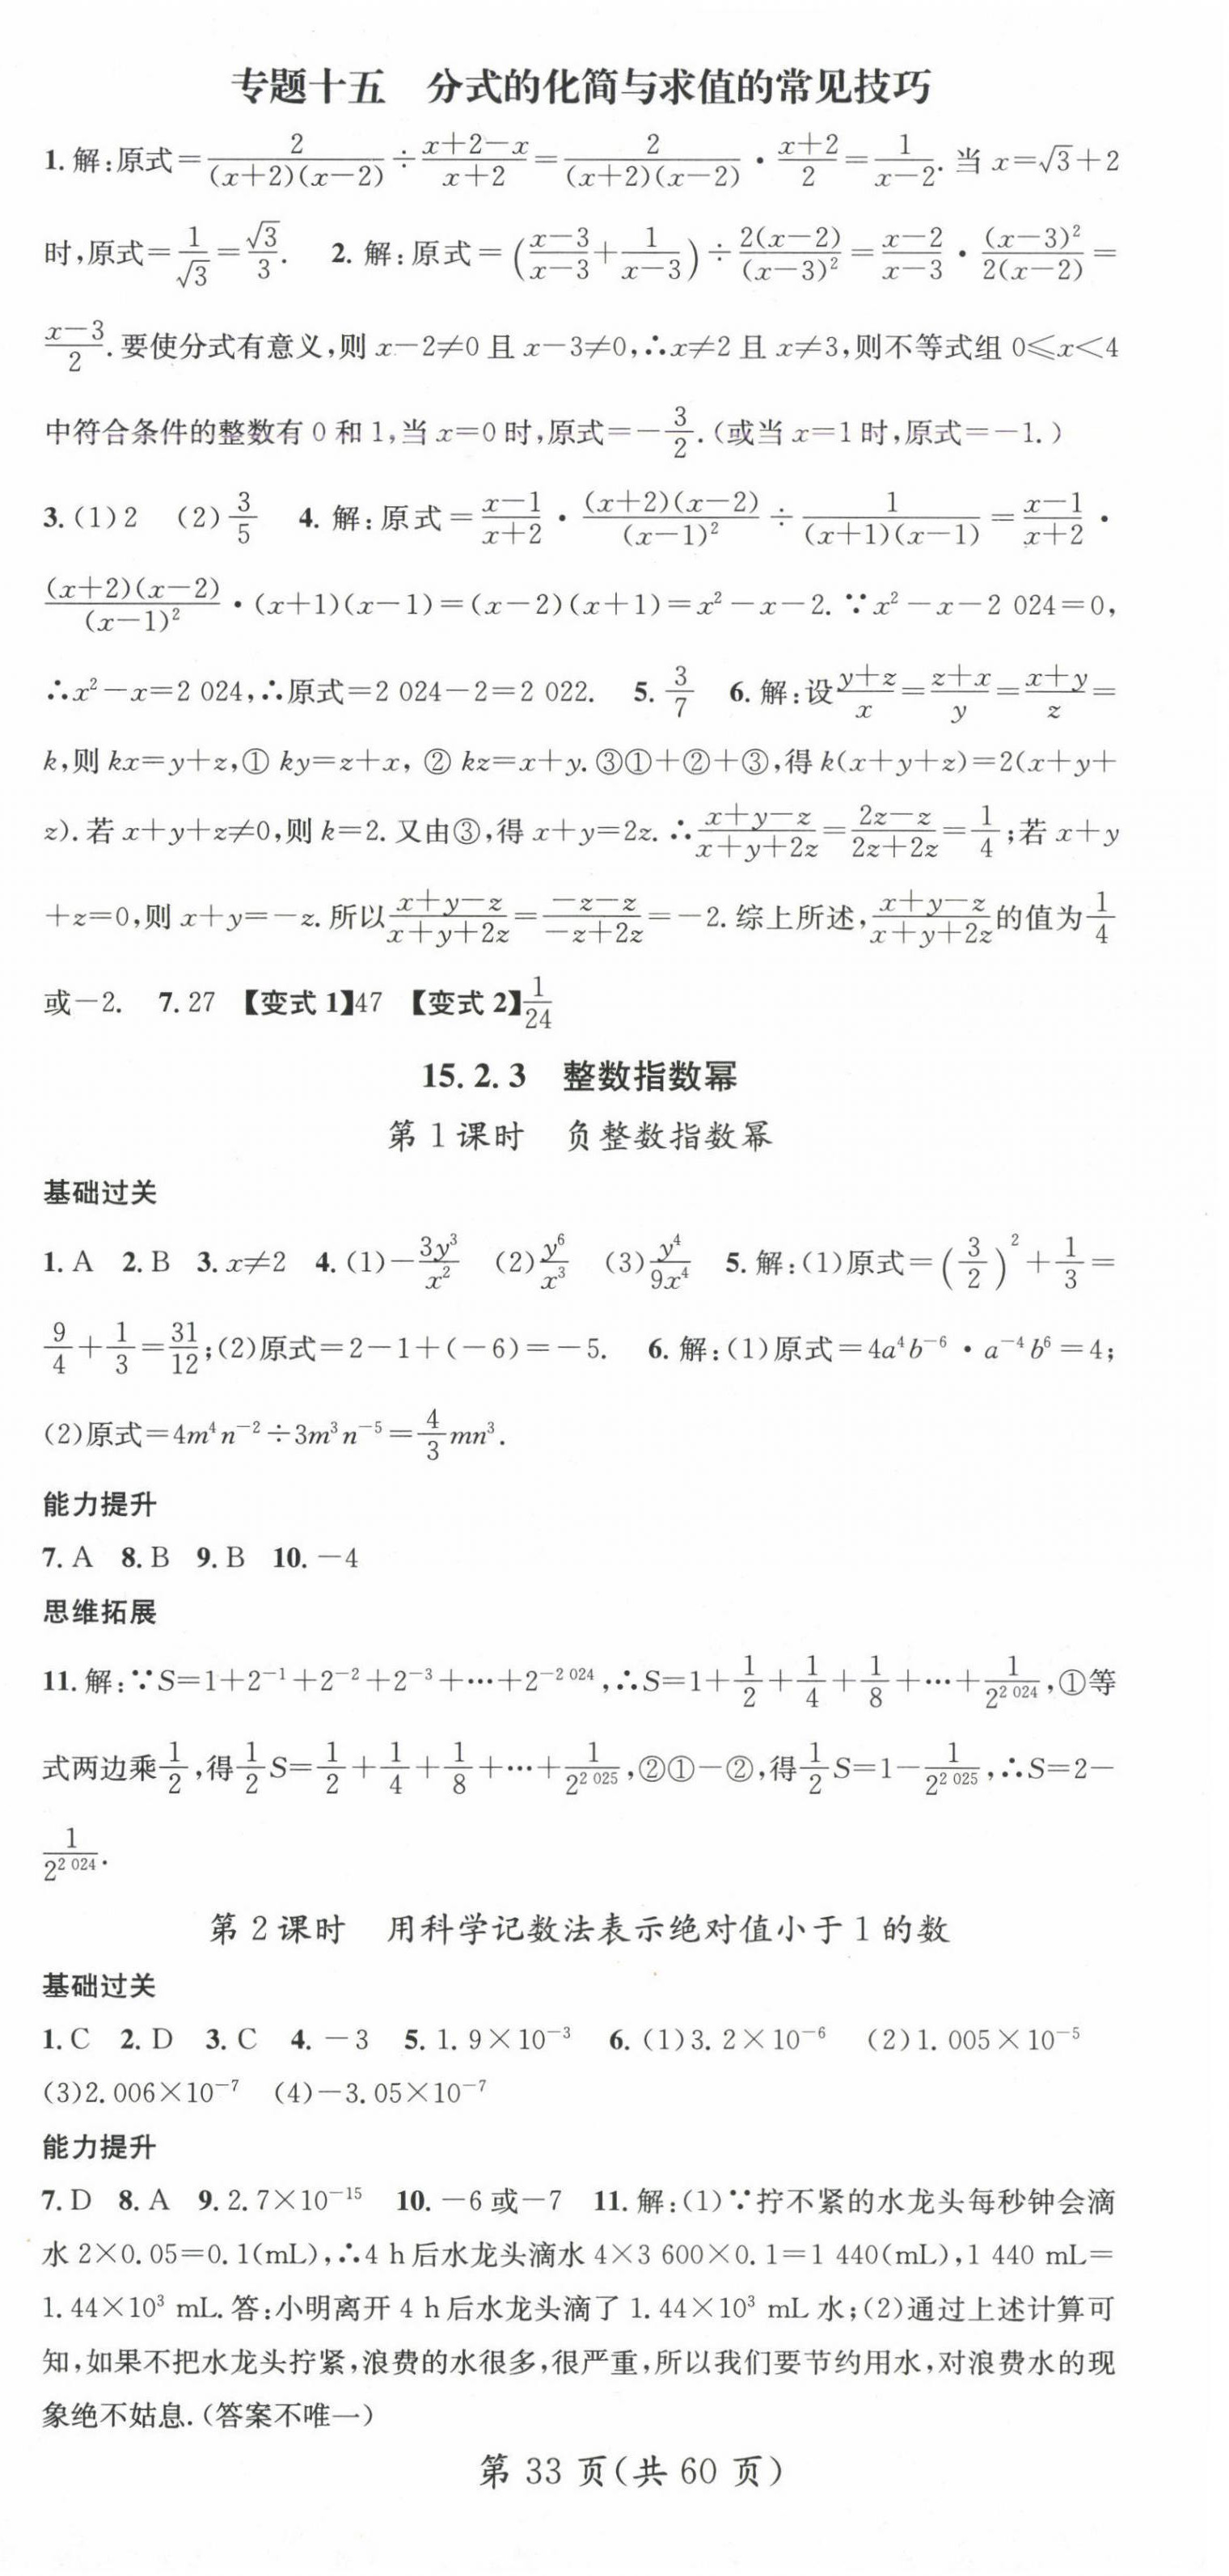 专题十五　分式的化简与求值的常见技巧
1.解:原式=2/((x+2)(x-2))÷(x+2-x)/(x+2)=2/((x+2)(x-2))·(x+2)/2=1/(x-2).当 x=√3+2
时,原式=1/√3=√3/3.　2.解:原式=((x-3)/(x-3)+1/(x-3))÷2(x-2)/(x-3)²=(x-2)/(x-3)·(x-3)²/(2(x-2))=
(x-3)/2.要使分式有意义,则 x-2≠0 且 x-3≠0,∴x≠2 且 x≠3,则不等式组 0≤x<4
中符合条件的整数有 0 和 1,当 x=0 时,原式=-3/2.(或当 x=1 时,原式=-1.)
3.(1)2　(2)3/5　4.解:原式=(x-1)/(x+2)·(x+2)(x-2)/(x-1)²÷1/((x+1)(x-1))=(x-1)/(x+2)·
(x+2)(x-2)/(x-1)²·(x+1)(x-1)=(x-2)(x+1)=x²-x-2.∵x²-x-2 024=0,
∴x²-x=2 024,∴原式=2 024-2=2 022.　5.3/7　6.解:设(y+z)/x=(z+x)/y=(x+y)/z=
k,则 kx=y+z,① ky=z+x,② kz=x+y.③①+②+③,得 k(x+y+z)=2(x+y+
z).若 x+y+z≠0,则 k=2.又由③,得 x+y=2z.∴(x+y-z)/(x+y+2z)=(2z-z)/(2z+2z)=1/4;若 x+y
+z=0,则 x+y=-z.所以(x+y-z)/(x+y+2z)=(-z-z)/(-z+2z)=-2.综上所述,(x+y-z)/(x+y+2z)的值为1/4
或-2.　7.27　【变式1】47　【变式2】1/24
15.2.3　整数指数幂
第1课时　负整数指数幂
基础过关
1.A　2.B　3.x≠2　4.(1)-3y³/x²　(2)y⁶/x³　(3)y⁴/9x⁴　5.解:(1)原式=(3/2)²+1/3=
9/4+1/3=31/12;(2)原式=2-1+(-6)=-5.　6.解:(1)原式=4a⁴b⁻⁶·a⁻⁴b⁶=4;
(2)原式=4m⁴n⁻²÷3m³n⁻⁵=4/3mn³.
能力提升
7.A　8.B　9.B　10.-4
思维拓展
11.解:∵S=1+2⁻¹+2⁻²+2⁻³+…+2⁻²⁰²⁴,∴S=1+1/2+1/4+1/8+…+1/2²⁰²⁴,①等
式两边乘1/2,得1/2S=1/2+1/4+1/8+…+1/2²⁰²⁵,②①-②,得1/2S=1-1/2²⁰²⁵,∴S=2-
1/2²⁰²⁴.
第2课时　用科学记数法表示绝对值小于1的数
基础过关
1.C　2.D　3.C　4.-3　5.1.9×10⁻³　6.(1)3.2×10⁻⁶　(2)1.005×10⁻⁵
(3)2.006×10⁻⁷　(4)-3.05×10⁻⁷
能力提升
7.D　8.A　9.2.7×10⁻¹⁵　10.-6或-7　11.解:(1)∵拧不紧的水龙头每秒钟会滴
水 2×0.05=0.1(mL),∴4 h后水龙头滴水 4×3 600×0.1=1 440(mL),1 440 mL=
1.44×10³ mL.答:小明离开 4 h后水龙头滴了 1.44×10³ mL水;(2)通过上述计算可
知,如果不把水龙头拧紧,浪费的水很多,很严重,所以我们要节约用水,对浪费水的现
象绝不姑息.(答案不唯一)
第 33 页(共 60 页)